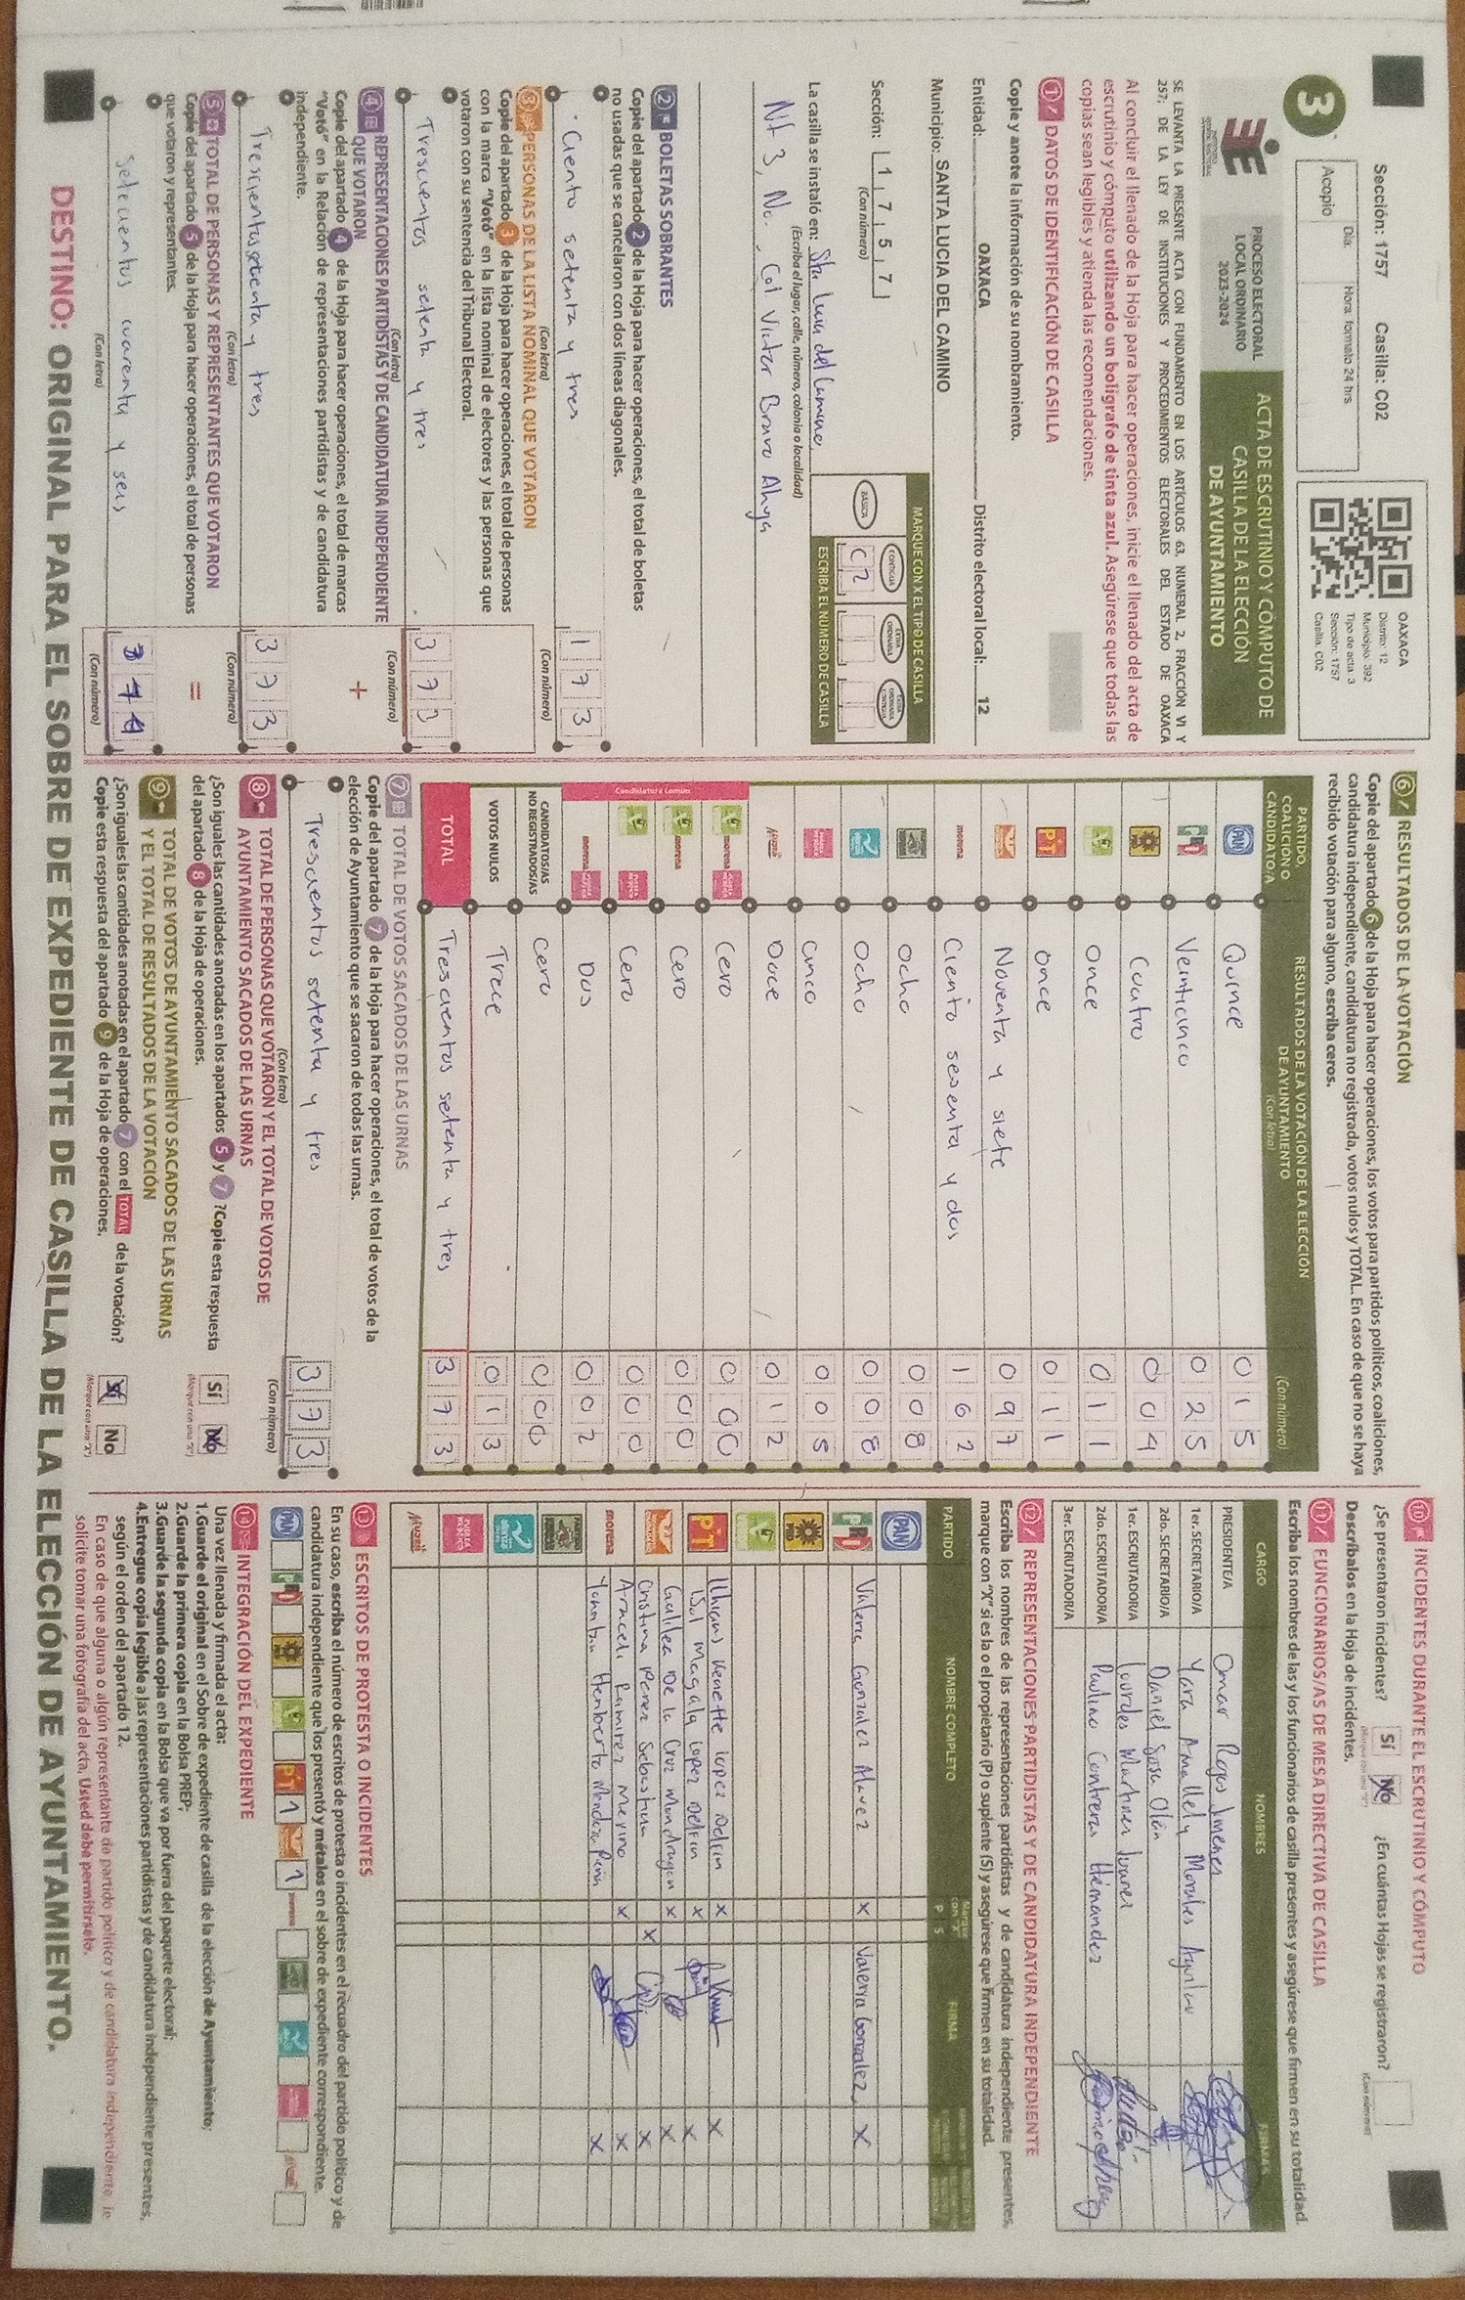 Sección: 1757 Casilla: C02
3
Acopio
Día:
Hora: formato 24 hrs.
OAXACA
Distrito: 12
Municipio: 392
Tipo de acta: 3
Sección: 1757
Casilla: C02
PROCESO ELECTORAL
LOCAL ORDINARIO
2023-2024
ACTA DE ESCRUTINIO Y CÓMPUTO DE
CASILLA DE LA ELECCIÓN
DE AYUNTAMIENTO
SE LEVANTA LA PRESENTE ACTA CON FUNDAMENTO EN LOS ARTÍCULOS 63, NUMERAL 2, FRACCIÓN VI Y
257; DE LA LEY DE INSTITUCIONES Y PROCEDIMIENTOS ELECTORALES DEL ESTADO DE OAXACA
Al concluir el llenado de la Hoja para hacer operaciones, inicie el llenado del acta de
escrutinio y cómputo utilizando un bolígrafo de tinta azul. Asegúrese que todas las
copias sean legibles y atienda las recomendaciones.
1 DATOS DE IDENTIFICACIÓN DE CASILLA
Copie y anote la información de su nombramiento.
Entidad: OAXACA Distrito electoral local: 12
Municipio: SANTA LUCIA DEL CAMINO
Sección: 1 7 5 7
(Con número)
MARQUE CON X EL TIPO DE CASILLA
BÁSICA
CONTIGUA
ESCRIBA EL NÚMERO DE CASILLA
C2
La casilla se instaló en: Sta Lucia del Camino
(Escriba el lugar, calle, número, colonia o localidad)
Col Victor Bravo Ahuja
2 BOLETAS SOBRANTES
Copie del apartado 2 de la Hoja para hacer operaciones, el total de boletas
no usadas que se cancelaron con dos líneas diagonales.
Ciento setenta y tres 1 7 3
(Con letra) (Con número)
3 PERSONAS DE LA LISTA NOMINAL QUE VOTARON
Copie del apartado 3 de la Hoja para hacer operaciones, el total de personas
con la marca "Votó" en la lista nominal de electores y las personas que
votaron con su sentencia del Tribunal Electoral.
Trescientos setenta y tres 3 7 3
(Con letra) (Con número)
4 REPRESENTACIONES PARTIDISTAS Y DE CANDIDATURA INDEPENDIENTE
QUE VOTARON
Copie del apartado 4 de la Hoja para hacer operaciones, el total de marcas
"Votó" en la Relación de representaciones partidistas y de candidatura
independiente.
+
Trescientos setenta y tres 3 7 3
(Con letra) (Con número)
5 TOTAL DE PERSONAS Y REPRESENTANTES QUE VOTARON
Copie del apartado 5 de la Hoja para hacer operaciones, el total de personas
que votaron y representantes.
=
Setecientos cuarenta y seis
(Con letra) (Con número)
6 RESULTADOS DE LA VOTACIÓN
Copie del apartado 6 de la Hoja para hacer operaciones, los votos para partidos políticos, coaliciones,
candidatura independiente, candidatura no registrada, votos nulos y TOTAL. En caso de que no se haya
recibido votación para alguno, escriba ceros.
PARTIDO,
COALICIÓN O
CANDIDATO/A
RESULTADOS DE LA VOTACIÓN DE LA ELECCIÓN
DE AYUNTAMIENTO
(Con letra)
(Con número)
PAN Quince 0 1 5
PRI Veinticinco 0 2 5
PRD Cuatro 0 0 4
VERDE Once 0 1 1
PT once 0 1 1
Noventa y siete 0 9 7
morena Ciento sesenta y dos 1 6 2
Ocho 0 0 8
Ocho 0 0 8
cinco 0 0 5
Mujer Doce 0 1 2
Candidatura Común
morena Cero 0 0 0
morena Cero 0 0 0
Cero 0 0 0
morena Dos 0 0 2
CANDIDATOS/AS
NO REGISTRADOS/AS
cero 0 0 0
VOTOS NULOS Trece 0 1 3
TOTAL Trescientos setenta y tres 3 7 3
7 TOTAL DE VOTOS SACADOS DE LAS URNAS
Copie del apartado 7 de la Hoja para hacer operaciones, el total de votos de la
elección de Ayuntamiento que se sacaron de todas las urnas.
Trescientos setenta y tres 3 7 3
(Con letra) (Con número)
8 TOTAL DE PERSONAS QUE VOTARON Y EL TOTAL DE VOTOS DE
AYUNTAMIENTO SACADOS DE LAS URNAS
¿Son iguales las cantidades anotadas en los apartados 5 y 7 ?Copie esta respuesta
del apartado 8 de la Hoja de operaciones.
Sí No
(Marque con una "X")
9 TOTAL DE VOTOS DE AYUNTAMIENTO SACADOS DE LAS URNAS
Y EL TOTAL DE RESULTADOS DE LA VOTACIÓN
¿Son iguales las cantidades anotadas en el apartado 7 con el TOTAL de la votación?
Copie esta respuesta del apartado 9 de la Hoja de operaciones.
Sí No
(Marque con una "X")
10 INCIDENTES DURANTE EL ESCRUTINIO Y CÓMPUTO
¿Se presentaron incidentes? Sí No ¿En cuántas Hojas se registraron?
(Marque con una "X") (Con número)
Descríbalos en la Hoja de incidentes.
11 FUNCIONARIOS/AS DE MESA DIRECTIVA DE CASILLA
Escriba los nombres de las y los funcionarios de casilla presentes y asegúrese que firmen en su totalidad.
CARGO NOMBRES FIRMAS
PRESIDENTE/A Omar Rojas Jimenes
1er. SECRETARIO/A Yara Anallely Morales Aguilar
2do. SECRETARIO/A Daniel Sosa Olán
1er. ESCRUTADOR/A Lourdes Martinez Juarez
2do. ESCRUTADOR/A Paulino Contreras Hernandez
3er. ESCRUTADOR/A
12 REPRESENTACIONES PARTIDISTAS Y DE CANDIDATURA INDEPENDIENTE
Escriba los nombres de las representaciones partidistas y de candidatura independiente presentes,
marque con "X" si es la o el propietario (P) o suplente (S) y asegúrese que firmen en su totalidad.
PARTIDO NOMBRE COMPLETO P S FIRMA
PAN
PRI Valeria Gonzalez Alvarez X Valerya Gonzalez X
PRD
VERDE
PT Lopez X X
Isol Magaly Lopez X X
Galilea De la Cruz Mondragon X X
Cristina Perez Sebastian X X
morena Araceli Ramirez Merino X X
Yonatan Heriberto Mendoza X
Mujer
13 ESCRITOS DE PROTESTA O INCIDENTES
En su caso, escriba el número de escritos de protesta o incidentes en el recuadro del partido político y de
candidatura independiente que los presentó y métalos en el sobre de expediente correspondiente.
PAN PRI PRD VERDE PT 1 1 morena
14 INTEGRACIÓN DEL EXPEDIENTE
Una vez llenada y firmada el acta:
1.Guarde el original en el Sobre de expediente de casilla de la elección de Ayuntamiento;
2.Guarde la primera copia en la Bolsa PREP;
3.Guarde la segunda copia en la Bolsa que va por fuera del paquete electoral;
4.Entregue copia legible a las representaciones partidistas y de candidatura independiente presentes,
según el orden del apartado 12.
En caso de que alguna o algún representante de partido político y de candidatura independiente le
solicite tomar una fotografía del acta, Usted debe permitírselo.
DESTINO: ORIGINAL PARA EL SOBRE DE EXPEDIENTE DE CASILLA DE LA ELECCIÓN DE AYUNTAMIENTO.